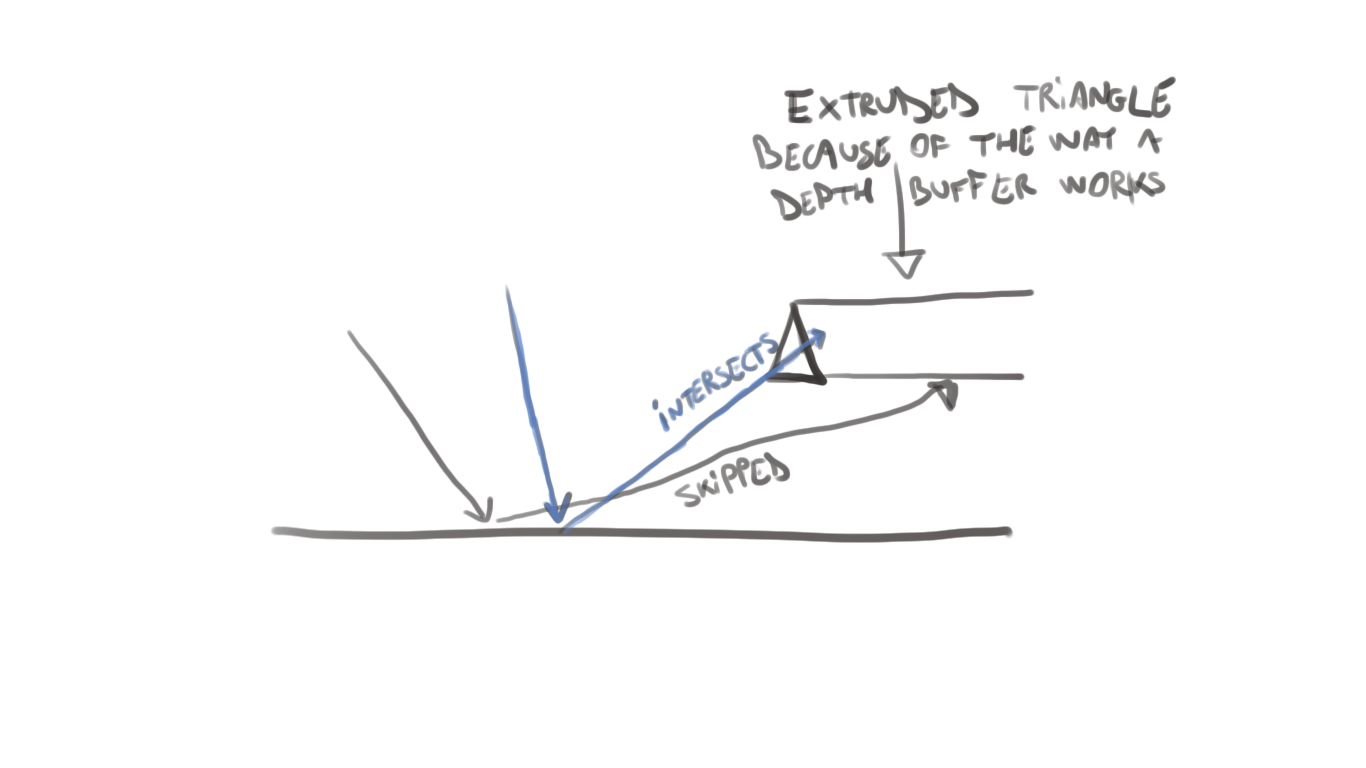 EXTRUDED TRIANGLE
BECAUSE OF THE WAY A
DEPTH BUFFER WORKS
INTERSECTS
SKIPPED